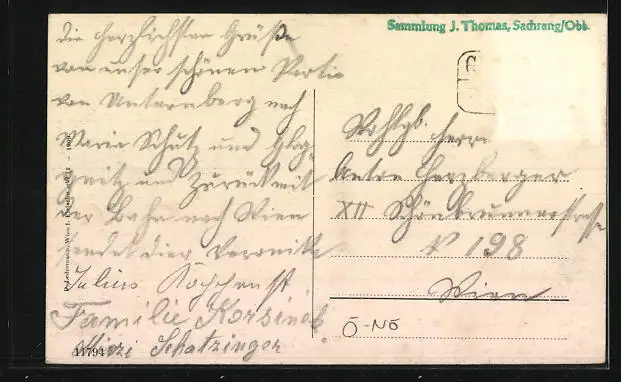 Sammlung J. Thomas, Sachrang/Obb.
Die herzlichsten Grüße
von unser schönen Partie
von Unternberg nach
Maria Schutz und Glog-
gnitz und Zurück mit
der Bahn nach Wien
sendet dier Veronika
Julius
Familie Korsinek
Mirzi Schatzinger
11794
Wohlgb. Herrn
Anton Herzberger
XII Schönbrunnerstrasse
№ 198
Wien
Ö-NÖ